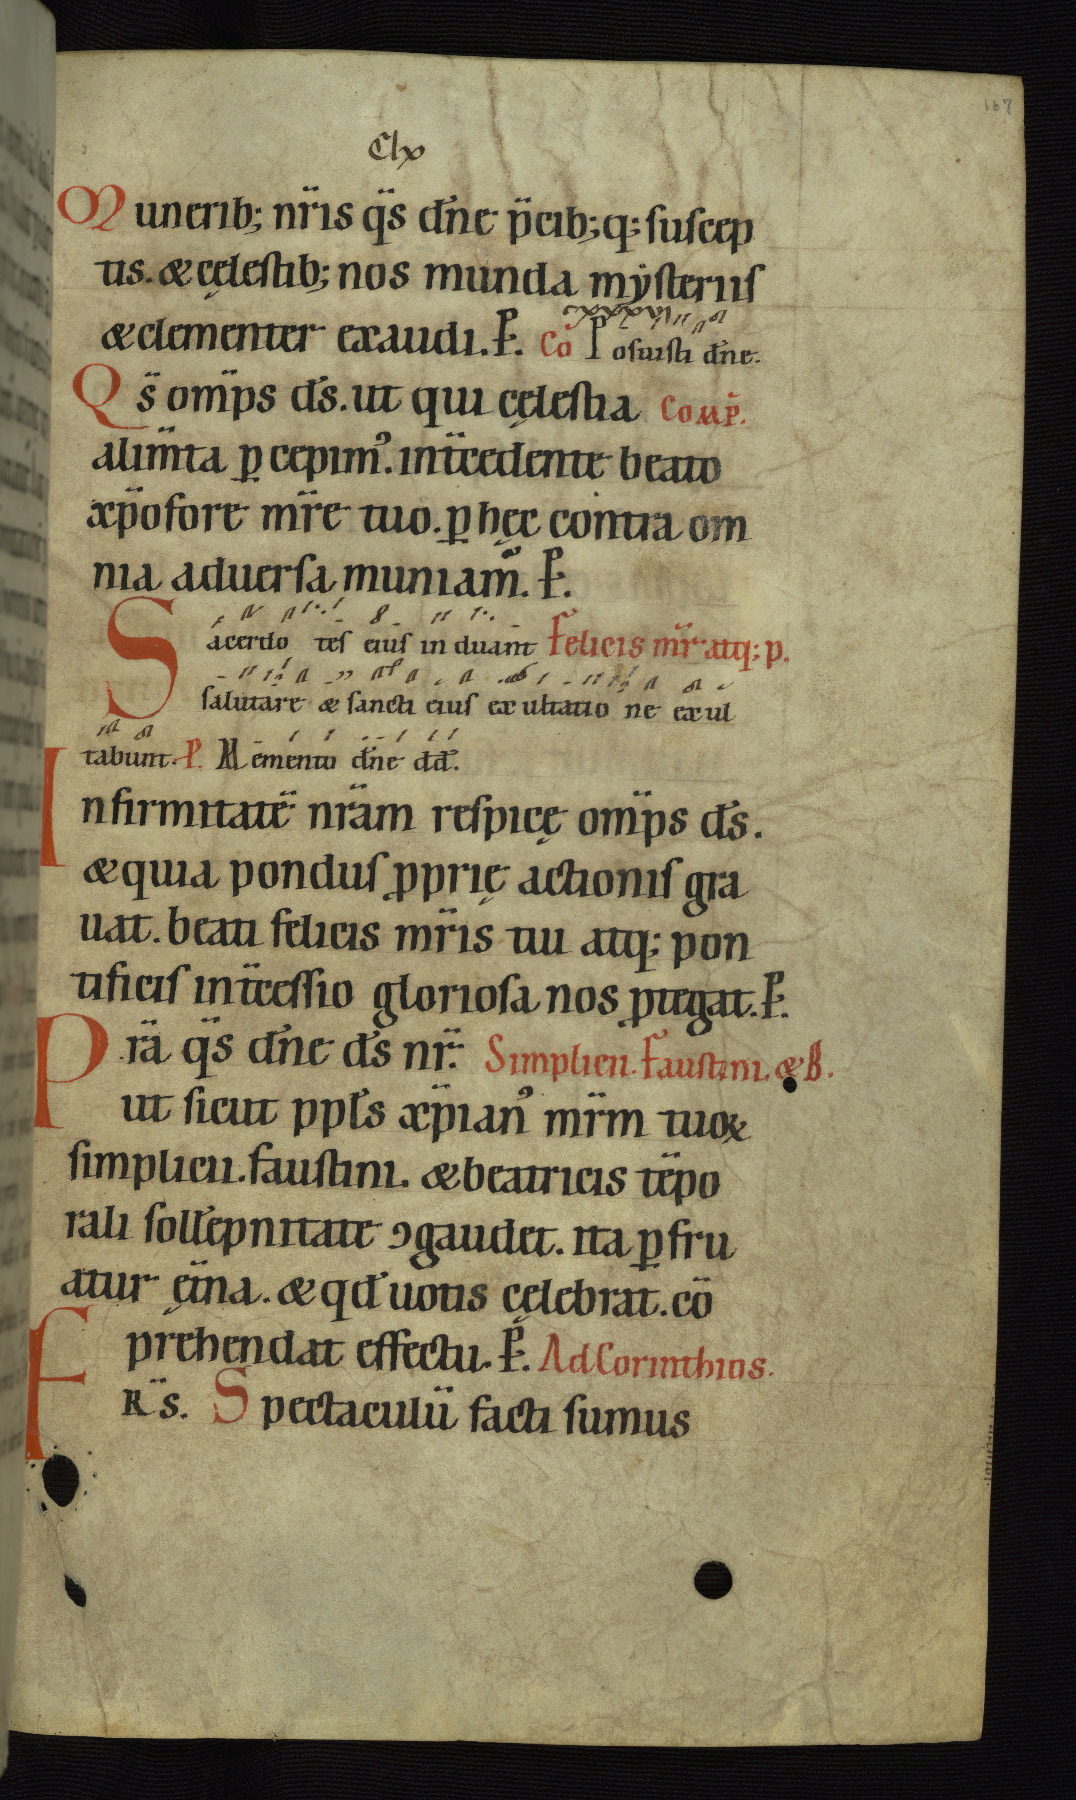 167
Clx
Munerib; nr̄is q̄s dn̄e p̄cib;q; suscep
tis. & cęlestib; nos munda mẏsteriis
& clementer exaudi. P̄. Cō Posuisti dn̄e.
Qs̄ om̄ps ds̄. ut qui cęlestia Com̄p.
alim̄ta ꝑcepim᾿. int̄cedente beato
xp̄ofore mr̄e tuo. ꝑ hęc contra om
nia aduersa muniam᾿. P̄.
Sacerdo tes eius induant Felicis mr̄ atq; p.
salutare & sancti eius exultatio ne exul
tabunt. P̄. Memento dn̄e dd̄.
Infirmitatē nr̄am respicę om̄ps ds̄.
& quia pondus ꝓprię actionis gra
uat. beati felicis mr̄is tui atq; pon
tificis int̄cessio gloriosa nos ꝓtegat. P̄.
Prā q̄s dn̄e ds̄ nr̄. Simplicii. Faustini. & B.
ut sicut ppl̄s xp̄ian᾿ mr̄m tuoꝝ
simplicii. faustini. & beatricis tēpo
rali soll'epnitate ꝯgaudet. ita ꝑfru
atur et̄na. & qd̄ uotis cęlebrat. cō
prehendat effectu. P̄. Ad Corinthios.
FR̄s. Spectaculū facti sumus